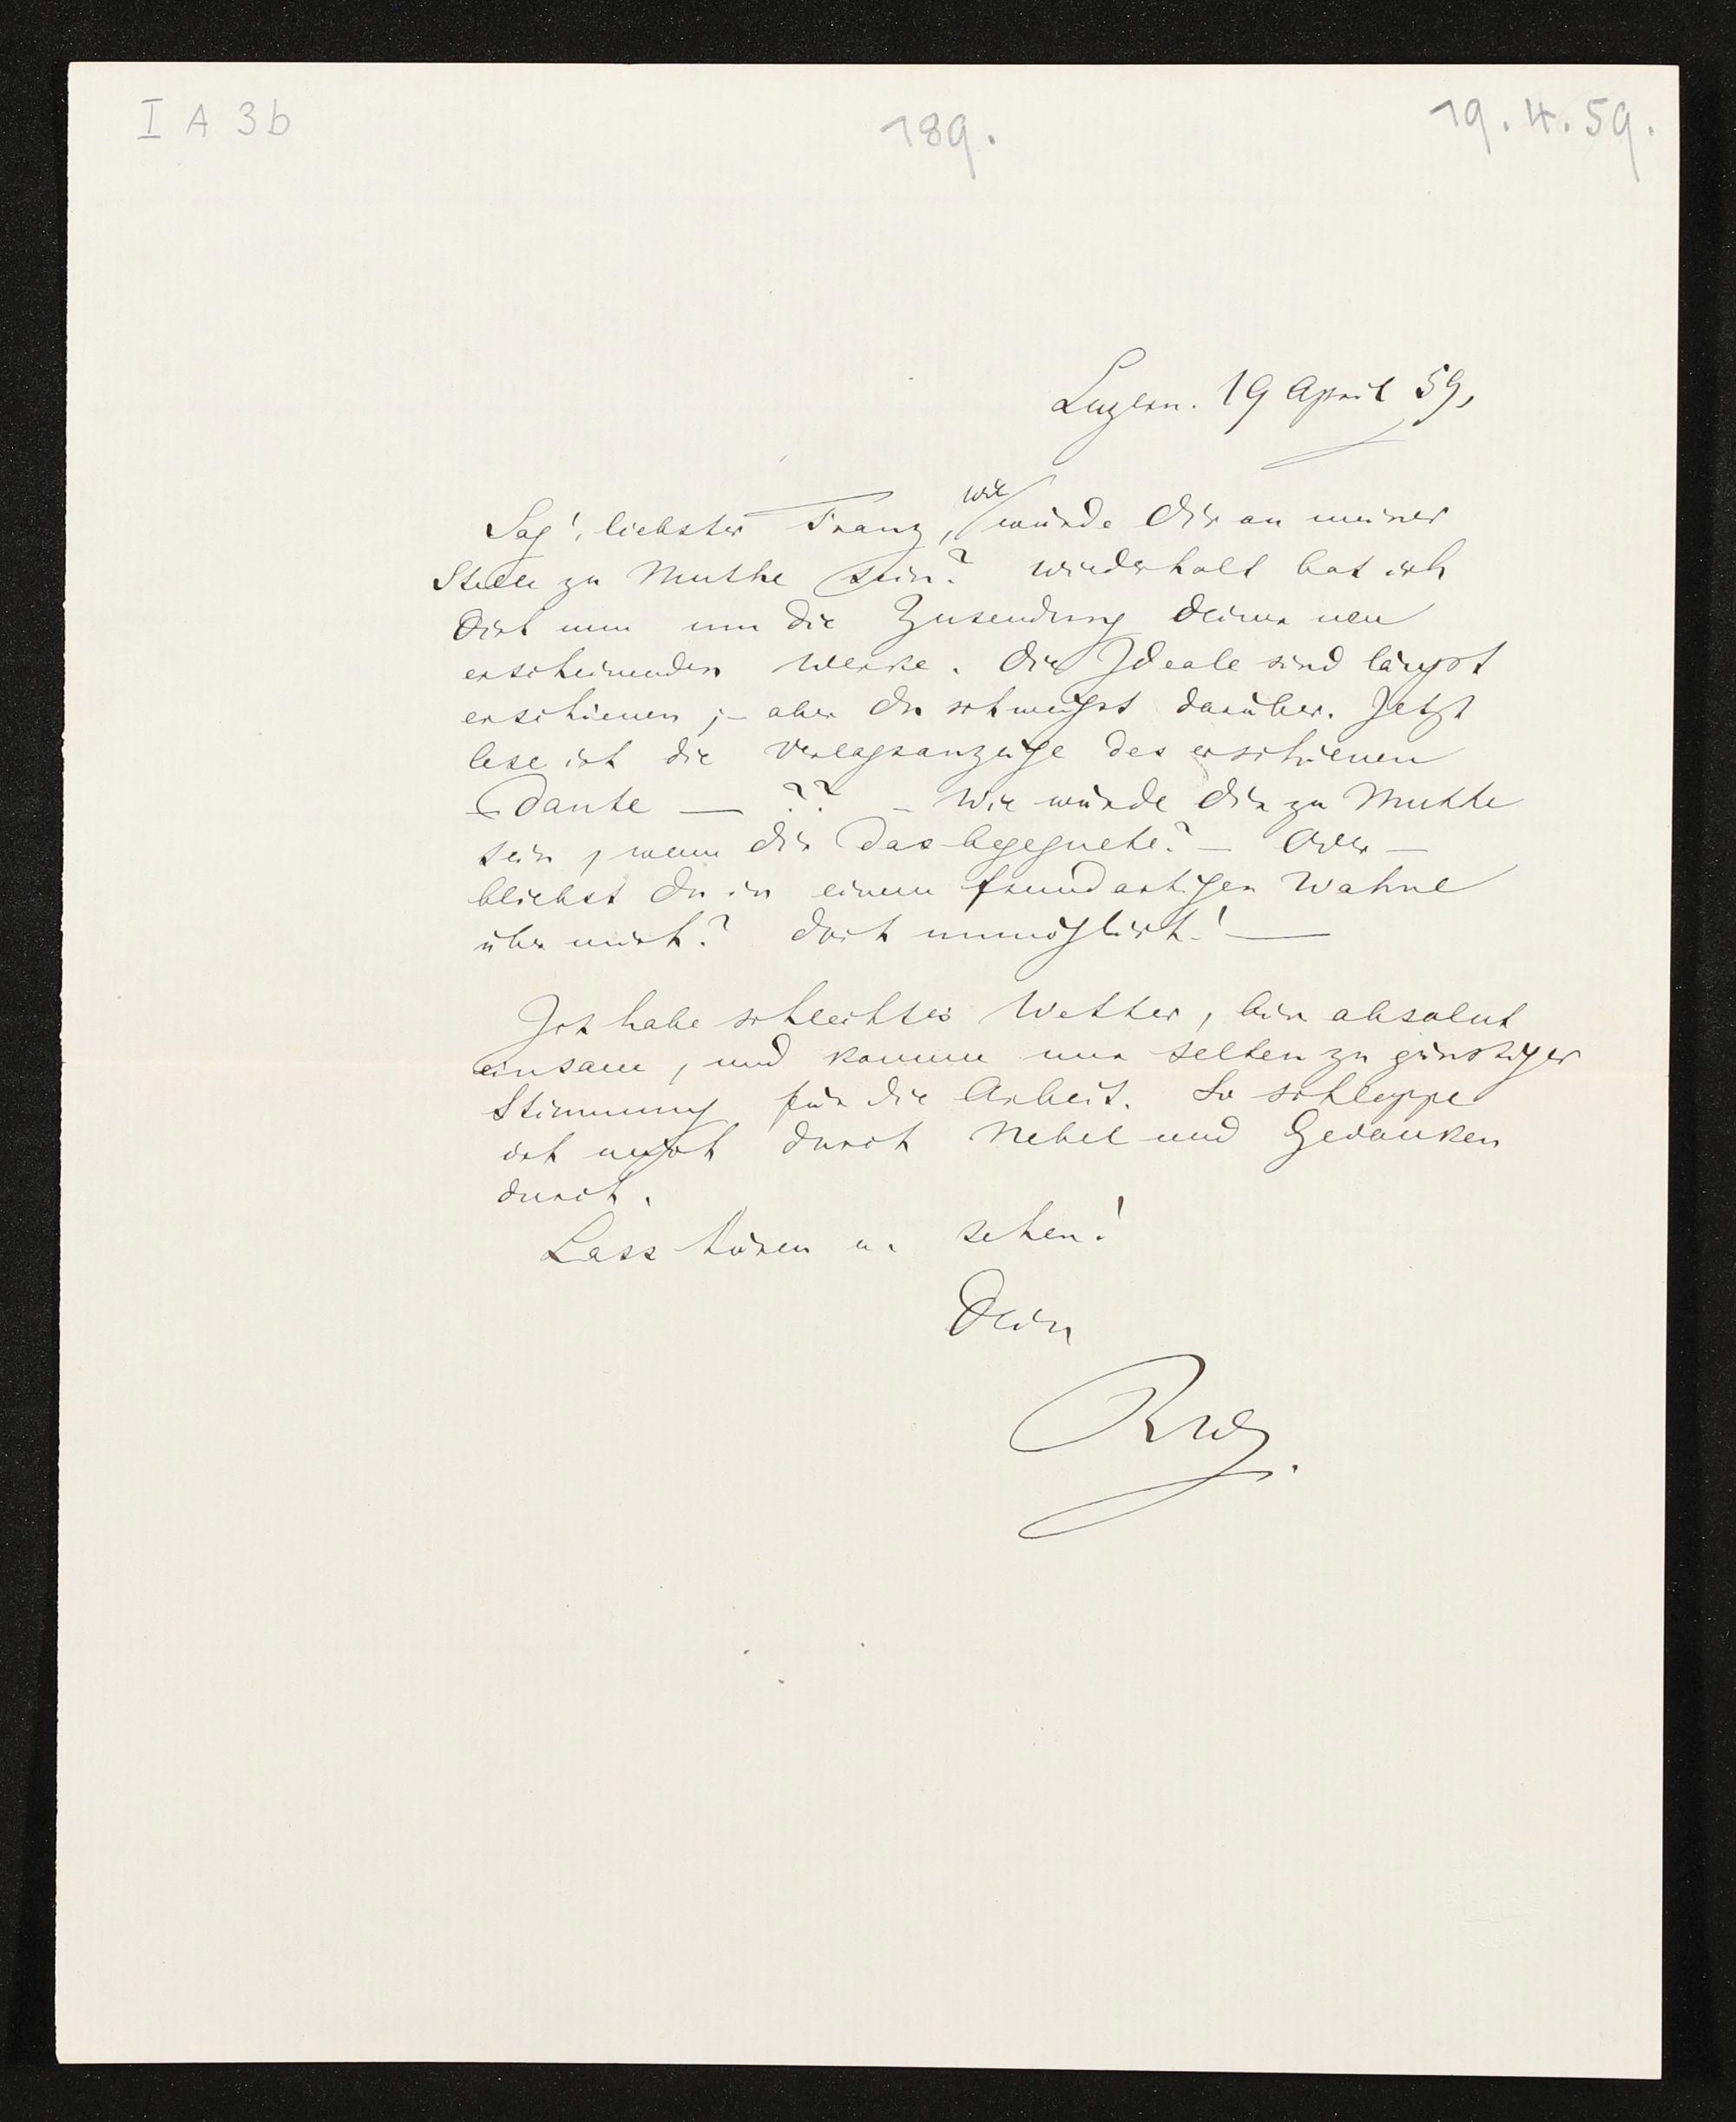 I A 3b
189.
19.4.59.
Luzern. 19 April 59,
Sag', liebster Franz, wie würde Dir an meiner
Stelle zu Muthe sein? Wiederholt bat ich
Dich nun um die Zusendung Deiner neu
erscheinenden Werke. Die Ideale sind längst
erschienen; – aber Du schweigst darüber. Jetzt
lese ich die Verlagsanzeige des erschienen
Dante — ?? – Wie würde Dir zu Muthe
sein, wenn Dir das begegnete? – Oder –
bliebst Du in einem fremdartigen Wahne
über mich? Doch unmöglich! —
Ich habe schlechtes Wetter, bin absolut
einsam, und komme nur selten zu günstiger
Stimmung für die Arbeit. So schleppe
ich mich durch Nebel und Gedanken
durch.
Lass hören u. sehen!
Dein
RW.